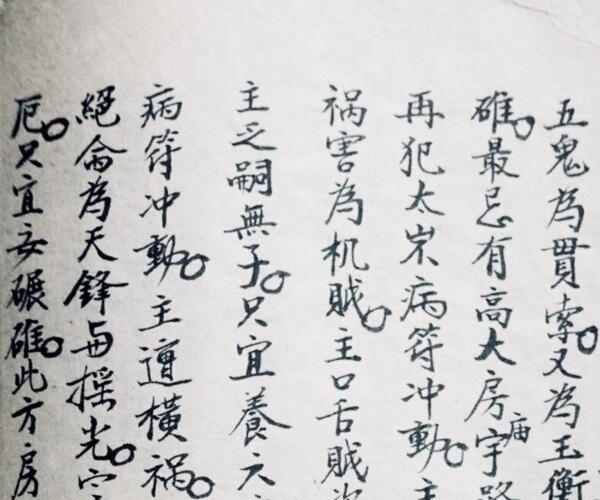 五鬼為貫索。又為玉衡
碓。最忌有高大房庙宇路
再犯太岁病符冲動。主
祸害為机賊。主口舌賊
主乏嗣無子。只宜養六
病符冲動。主遭橫祸。
絕命為天鋒与摇光。
厄。只宜安碾碓。此方房